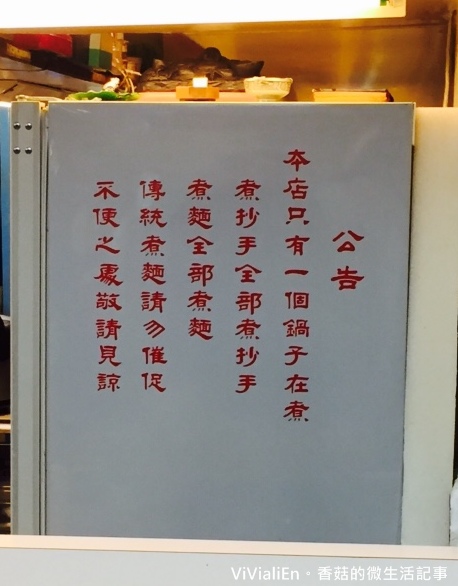 公告
本店只有一個鍋子在煮
煮抄手全部煮抄手
煮麵全部煮麵
傳統煮麵請勿催促
不便之處敬請見諒
ViVialiEn。香菇的微生活記事